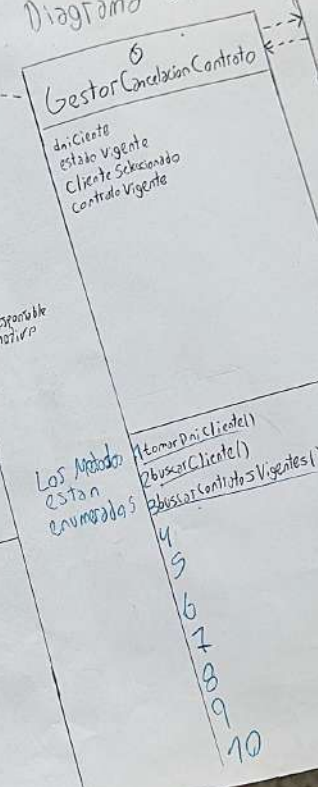 Diagrama
GestorCancelacionContrato
dniCiente
estado vigente
Cliente Seleccionado
Contrato Vigente
Los Metodos
estan
enumerados
1tomarDniCliente()
2buscarCliente()
3buscarContratosVigentes()
4
5
6
7
8
9
10